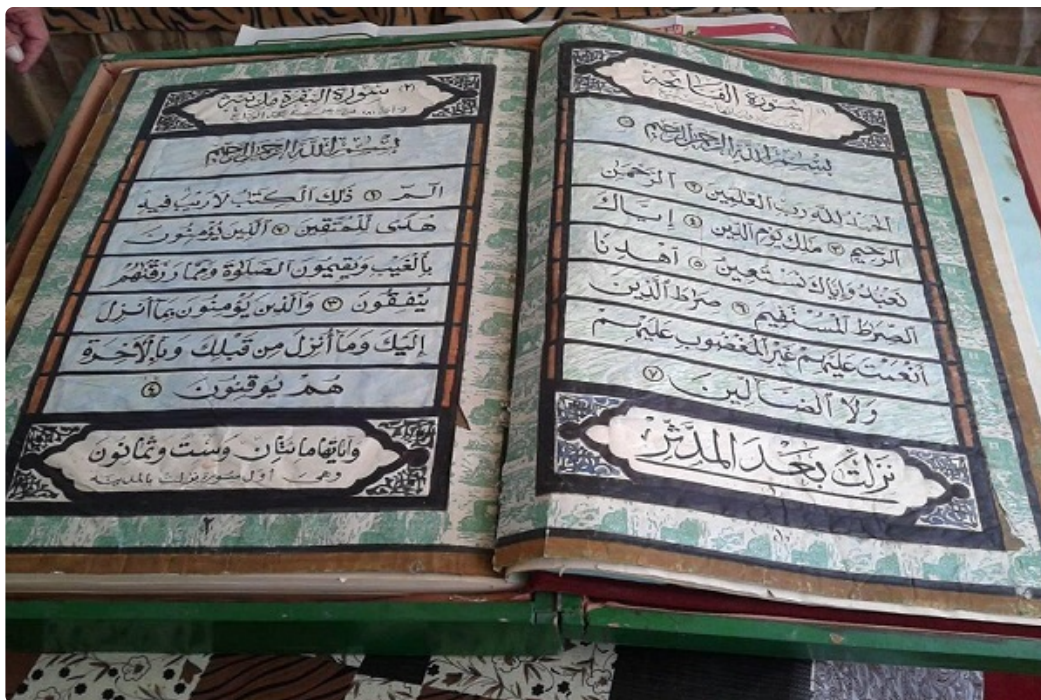 سورة الفاتحة
بسم الله الرحمن الرحيم ١
الحمد لله رب العلمين ٢ الرحمن
الرحيم ٣ ملك يوم الدين ٤ إياك
نعبد وإياك نستعين ٥ اهدنا
الصرط المستقيم ٦ صرط الذين
أنعمت عليهم غير المغضوب عليهم
ولا الضالين ٧
نزلت بعد المدثر
(٢) سورة البقرة مدنية
بسم الله الرحمن الرحيم
الم ١ ذلك الكتب لا ريب فيه
هدى للمتقين ٢ الذين يؤمنون
بالغيب ويقيمون الصلوة ومما رزقنهم
ينفقون ٣ والذين يؤمنون بما أنزل
إليك وما أنزل من قبلك وبالآخرة
هم يوقنون ٤
وآياتها مائتان وست وثمانون
وهي أول سورة نزلت بالمدينة
٢